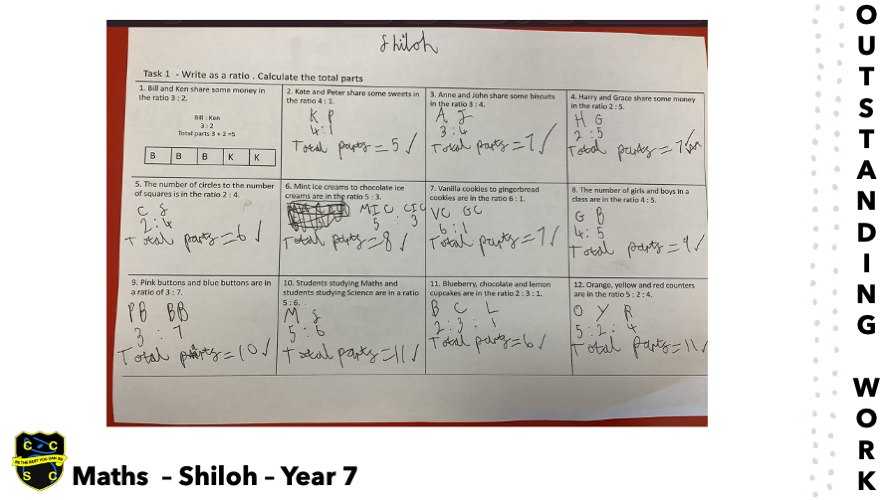 Shiloh
Task 1 - Write as a ratio . Calculate the total parts
1. Bill and Ken share some money in
the ratio 3 : 2.
Bill : Ken
3 : 2
Total parts 3 + 2 =5
B B B K K
2. Kate and Peter share some sweets in
the ratio 4 : 1.
K P
4:1
Total parts = 5
3. Anne and John share some biscuits
in the ratio 3 : 4.
A J
3:4
Total parts = 7
4. Harry and Grace share some money
in the ratio 2 : 5.
H G
2:5
Total parts = 7
5. The number of circles to the number
of squares is in the ratio 2 : 4.
C S
2:4
Total parts = 6
6. Mint ice creams to chocolate ice
creams are in the ratio 5 : 3.
MIC CIC
5 : 3
Total parts = 8
7. Vanilla cookies to gingerbread
cookies are in the ratio 6 : 1.
VC GC
6:1
Total parts = 7
8. The number of girls and boys in a
class are in the ratio 4 : 5.
G B
4:5
Total parts = 9
9. Pink buttons and blue buttons are in
a ratio of 3 : 7.
PB BB
3 : 7
Total parts = 10
10. Students studying Maths and
students studying Science are in a ratio
5 : 6.
M S
5 : 6
Total parts = 11
11. Blueberry, chocolate and lemon
cupcakes are in the ratio 2 : 3 : 1.
B C L
2:3:1
Total parts = 6
12. Orange, yellow and red counters
are in the ratio 5 : 2 : 4.
O Y R
5:2:4
Total parts = 11
C C
BE THE BEST YOU CAN BE
S C
Maths - Shiloh - Year 7
OUTSTANDING
WORK